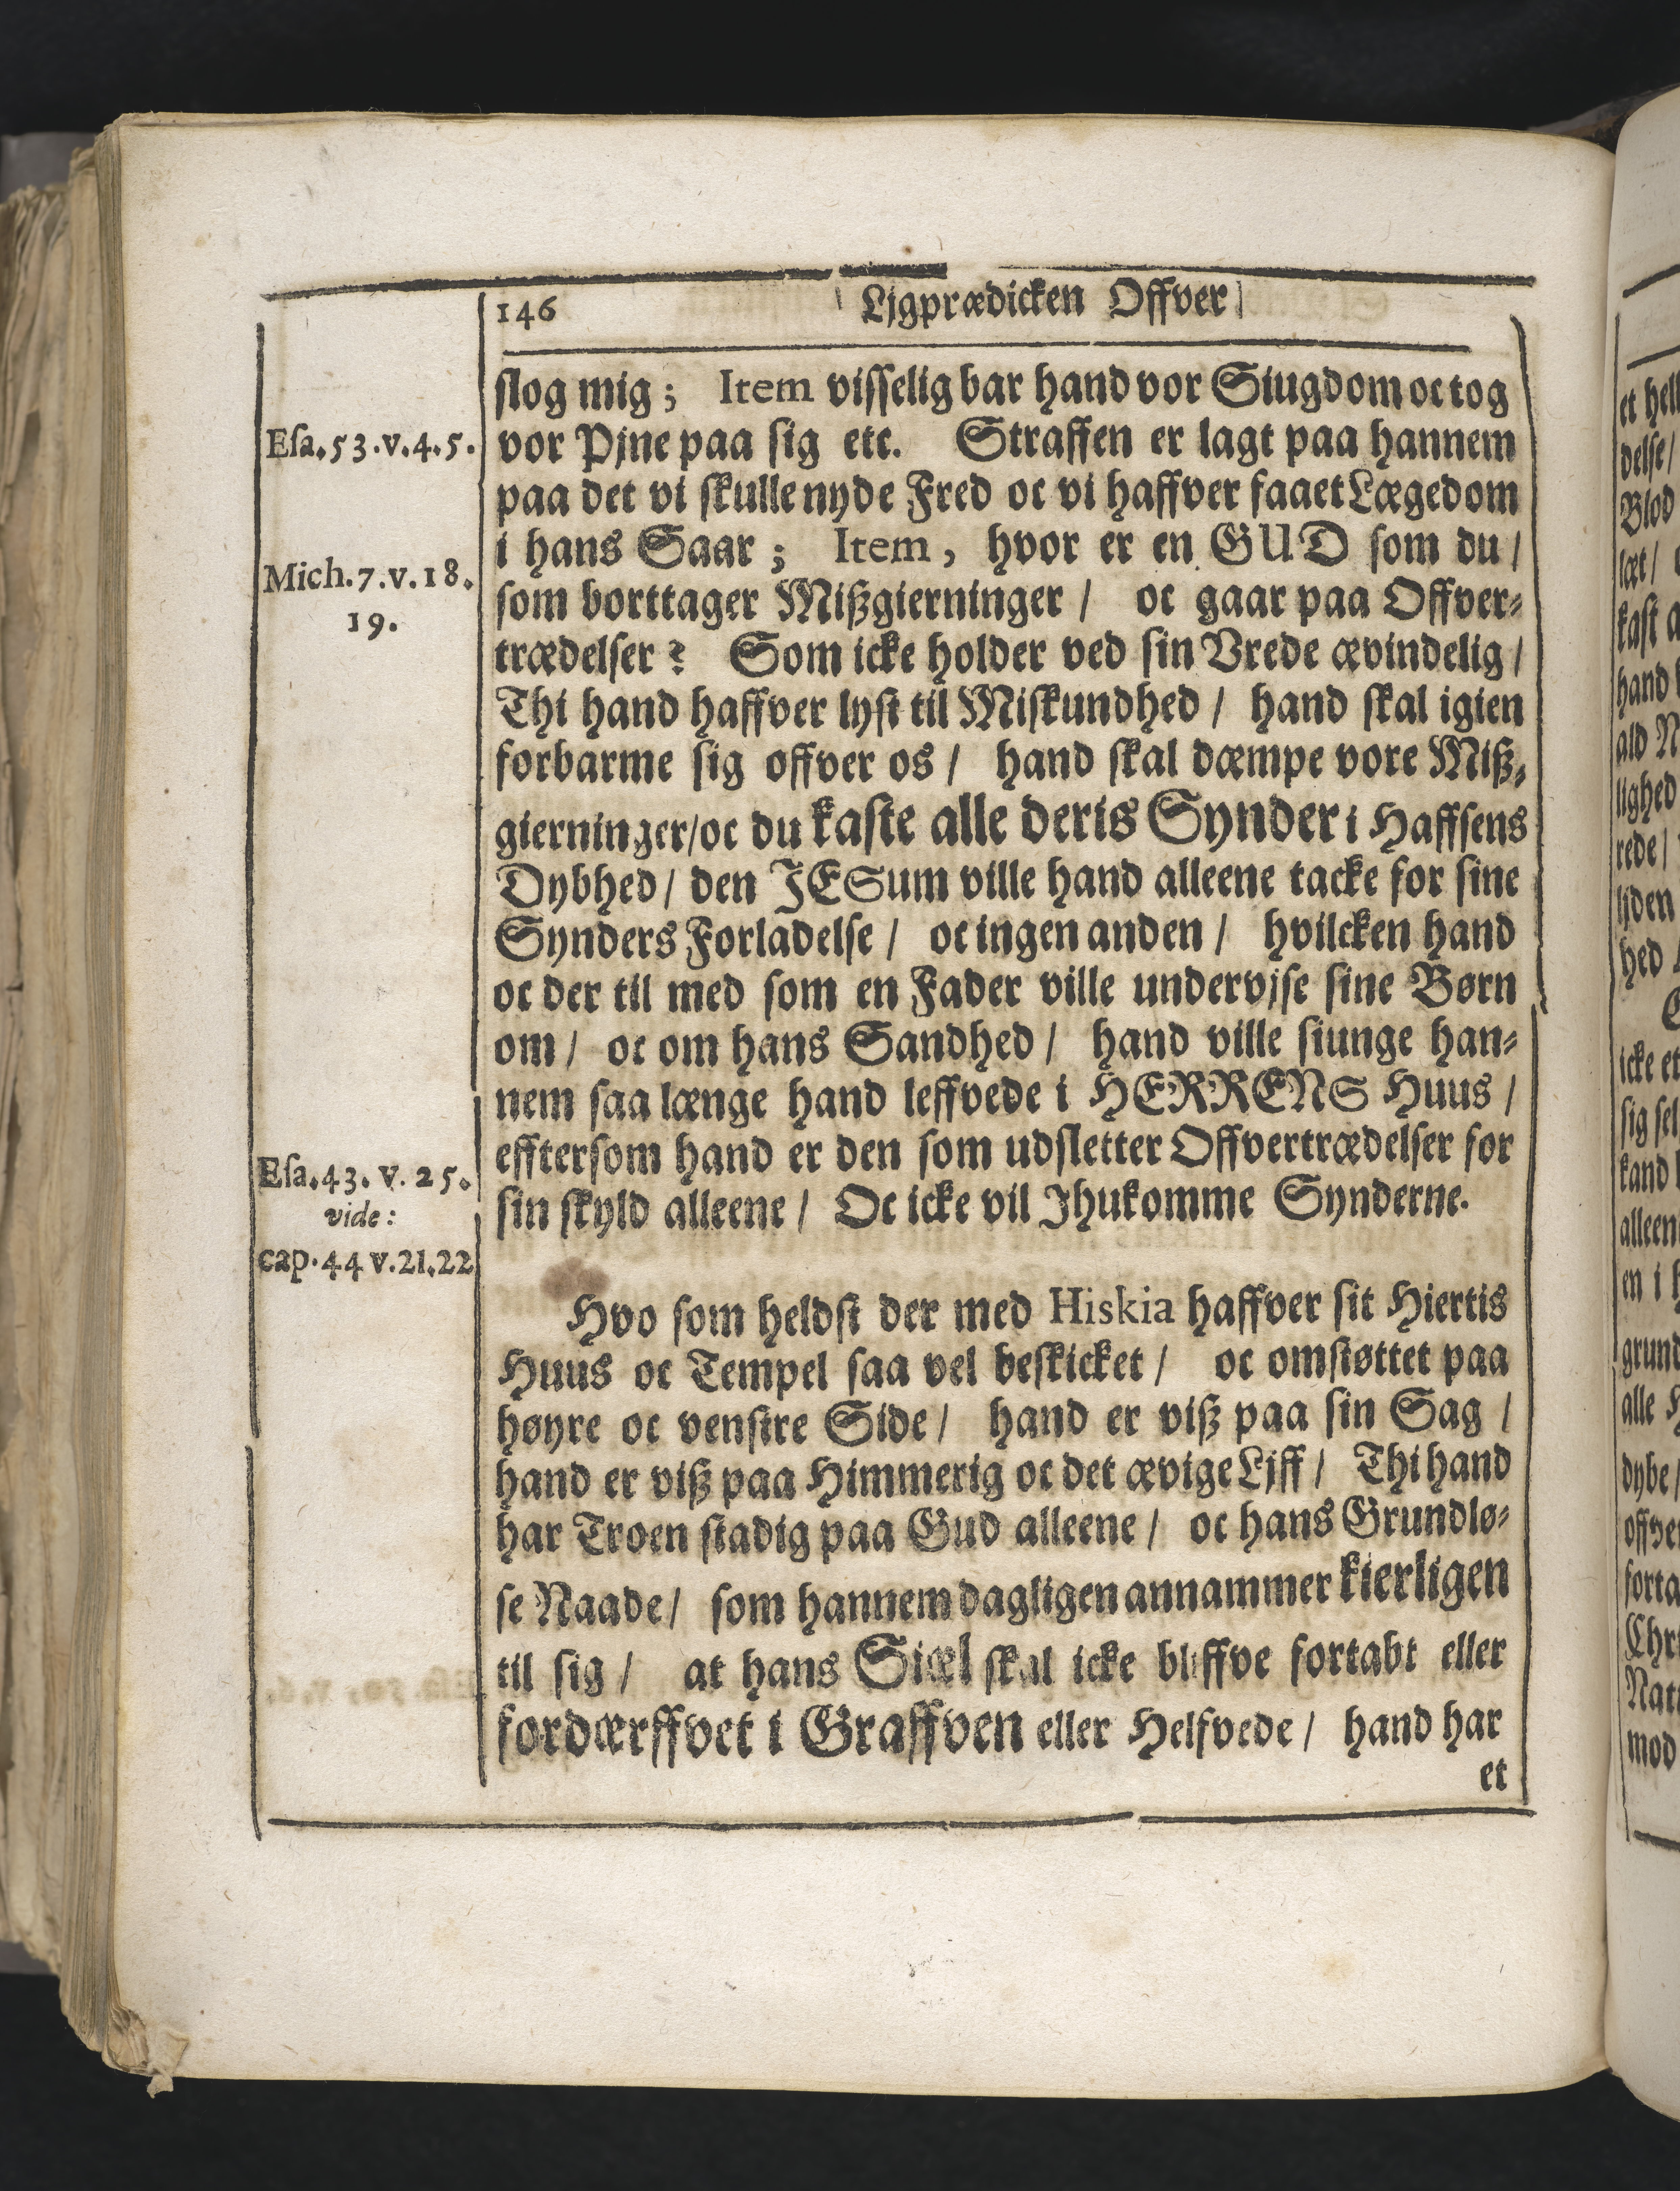 146 Ljgprædicken Offver
slog mig; Item visselig bar hand vor Siugdom oc tog
Esa.53.v.4.5. vor Pjne paa sig etc. Straffen er lagt paa hannem
paa det vi skulle nyde Fred oc vi haffver faaet Lægedom
i hans Saar; Item, hvor er en GUD som du /
Mich.7.v.18.
19.
som borttager Mißgierninger / oc gaar paa Offver-
trædelser? Som icke holder ved sin Vrede ævindelig /
Thi hand haffver lyst til Miskundhed / hand skal igien
forbarme sig offver os / hand skal dæmpe vore Miß-
gierninger/oc du kaste alle deris Synder i Haffsens
Dybhed / den JESum ville hand alleene tacke for sine
Synders Forladelse / oc ingen anden / hvilcken hand
oc der til med som en Fader ville undervjse sine Børn
om / oc om hans Sandhed / hand ville siunge han-
nem saa længe hand leffvede i HERRENS Huus /
efftersom hand er den som udsletter Offvertrædelser for
Esa.43. v. 25.
vide:
cap.44 v.21.22
sin skyld alleene / Oc icke vil Jhukomme Synderne.
Hvo som heldst der med Hiskia haffver sit Hiertis
Huus oc Tempel saa vel beskicket / oc omstøttet paa
høyre oc venstre Side / hand er viß paa sin Sag /
hand er viß paa Himmerig oc det ævige Ljff / Thi hand
har Troen stadig paa Gud alleene / oc hans Grundlø-
se Naade / som hannem dagligen annammer kierligen
til sig / at hans Siæl skal icke bliffve fortabt eller
fordærffvet i Graffven eller Helfvede / hand har
et